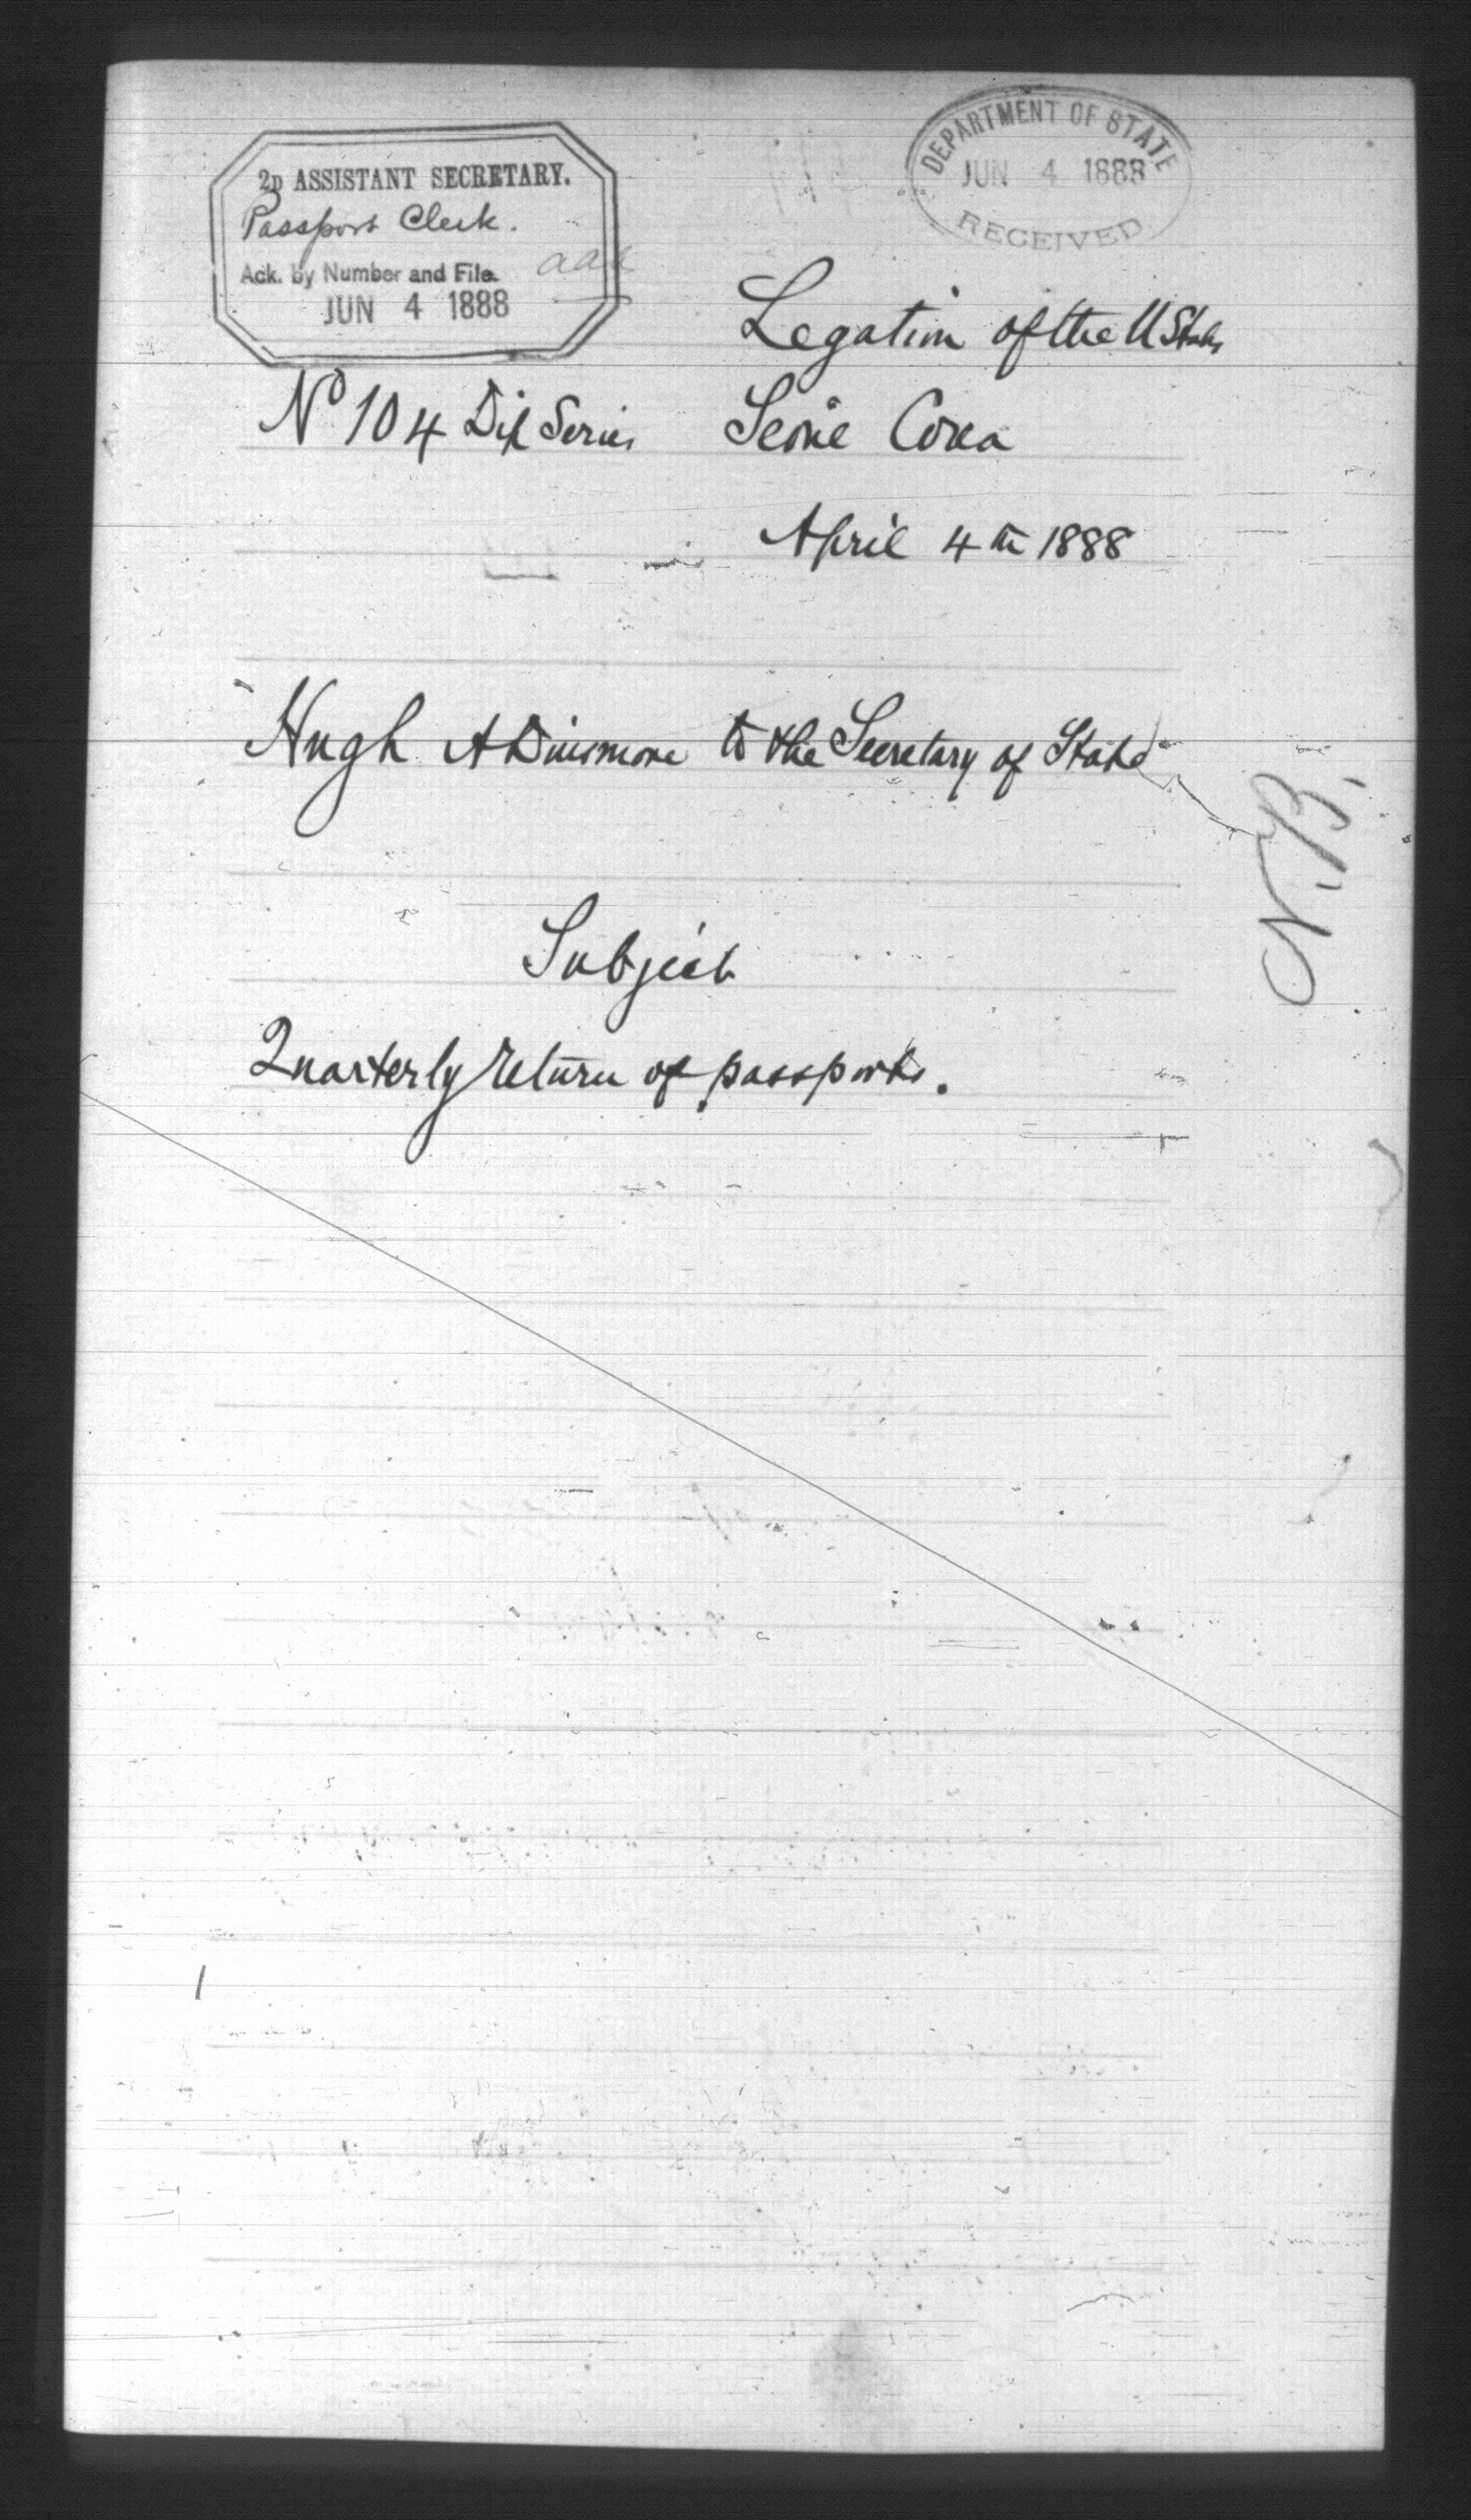 2D ASSISTANT SECRETARY.
Passport Clerk.
Ack. by Number and File.
JUN 4 1888
DEPARTMENT OF STATE
JUN 4 1888
RECEIVED
Legation of the U States
No 104 Dip Series Seoul Corea
April 4th 1888
Hugh A Dinsmore to the Secretary of State
N.B.
Subject
Quarterly return of passports.